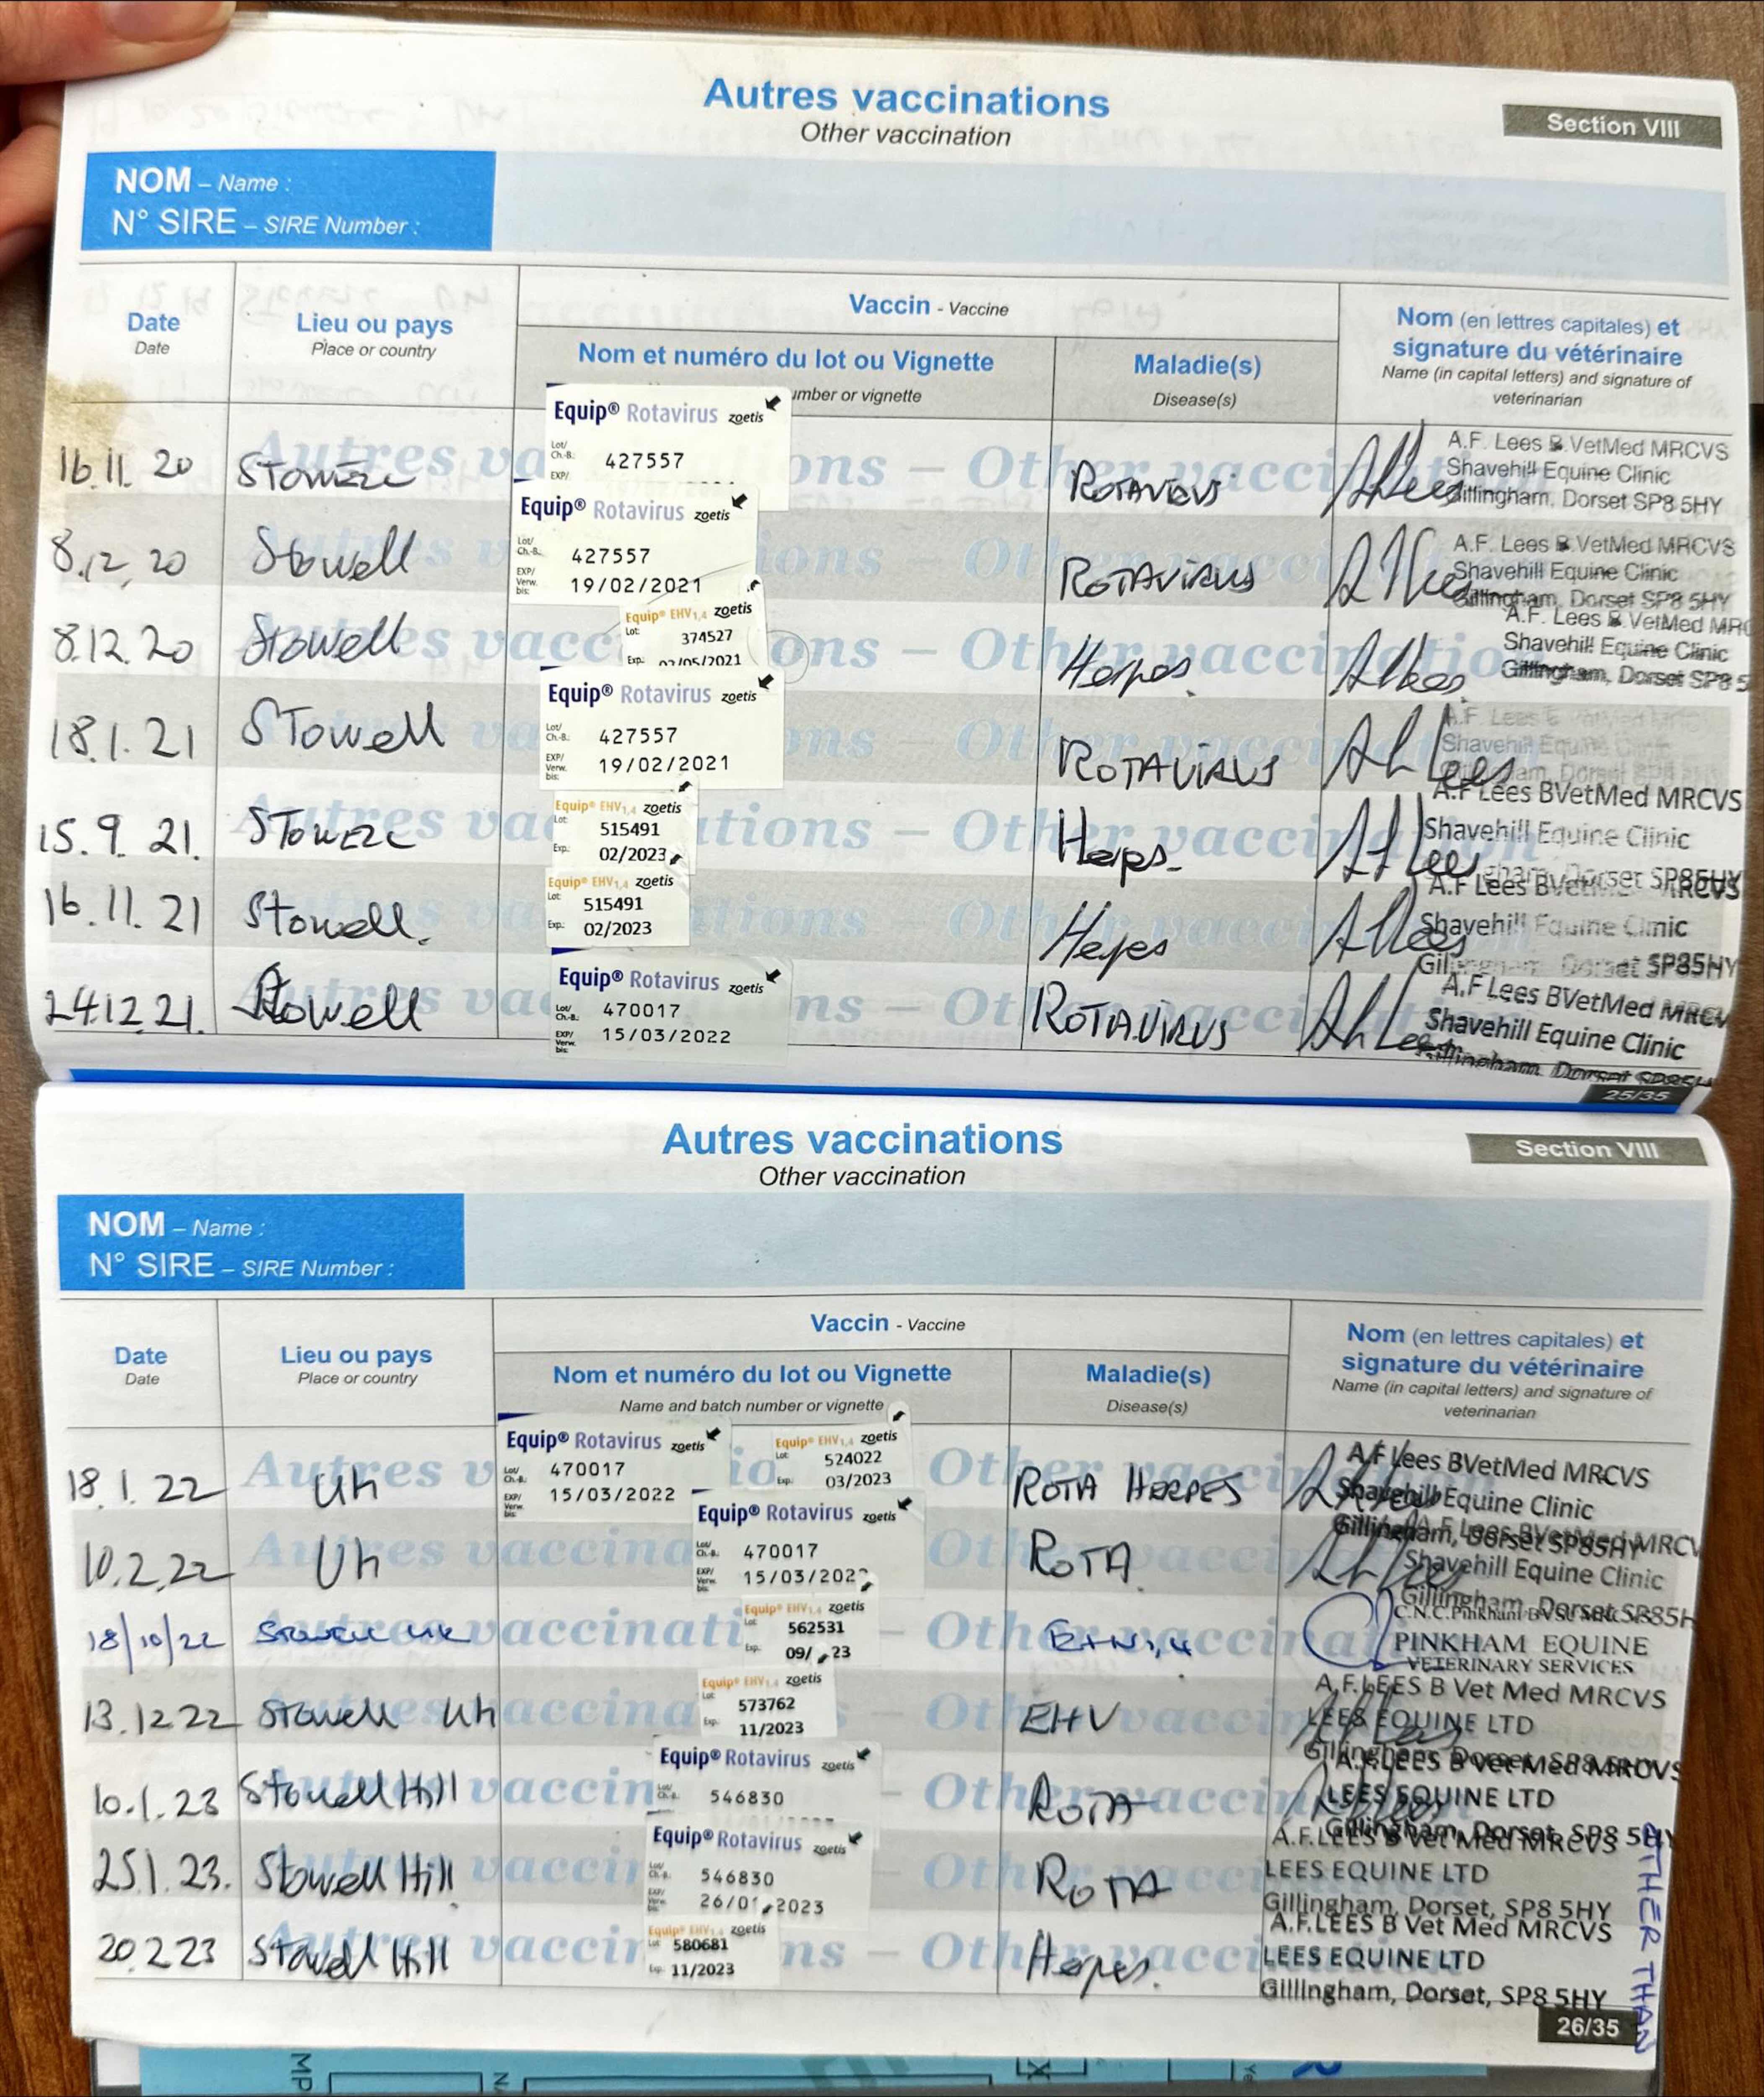 Autres vaccinations
Other vaccination
Section VIII
NOM – Name :
N° SIRE – SIRE Number :
Date
Date
Lieu ou pays
Place or country
Vaccin - Vaccine
Nom et numéro du lot ou Vignette
umber or vignette
Maladie(s)
Disease(s)
Nom (en lettres capitales) et
signature du vétérinaire
Name (in capital letters) and signature of
veterinarian
16.11.20 Stowell
Equip® Rotavirus zoetis
Lot/
Ch.-B.: 427557
EXP/
Rotavirus
A.F. Lees B VetMed MRCVS
Shavehill Equine Clinic
Gillingham, Dorset SP8 5HY
8.12.20 Stowell
Equip® Rotavirus zoetis
Lot/
Ch.-B.: 427557
EXP/
Verw. 19/02/2021
bis:
ROTAVIRUS
A.F. Lees B VetMed MRCVS
Shavehill Equine Clinic
Gillingham, Dorset SP8 5HY
8.12.20 Stowell
Equip® EHV1,4 zoetis
Lot: 374527
Exp: 02/05/2021
Herpes
A.F. Lees B.VetMed MRC
Shavehill Equine Clinic
Gillingham, Dorset SP8 5
18.1.21 STowell
Equip® Rotavirus zoetis
Lot/
Ch.-B.: 427557
EXP/
Verw. 19/02/2021
bis:
ROTAVIRUS
A.F. Lees
Shavehill Equine
15.9.21. STOWELL
Equip® EHV1,4 zoetis
Lot: 515491
Exp.: 02/2023
Herps.
A.F Lees BVetMed MRCVS
Shavehill Equine Clinic
Dorset SP85HY
16.11.21 Stowell.
Equip® EHV1,4 zoetis
Lot: 515491
Exp.: 02/2023
Herpes
A.F Lees BVetMed MRCVS
Shavehill Equine Clinic
Gillingham Dorset SP85HY
24.12.21. Stowell
Equip® Rotavirus zoetis
Lot/
Ch.-B.: 470017
EXP/
Verw. 15/03/2022
bis:
ROTAVIRUS
A.F Lees BVetMed MRCV
Shavehill Equine Clinic
Gillingham, Dorset SP85H
25/35
Autres vaccinations
Other vaccination
Section VIII
NOM – Name :
N° SIRE – SIRE Number :
Date
Date
Lieu ou pays
Place or country
Vaccin - Vaccine
Nom et numéro du lot ou Vignette
Name and batch number or vignette
Maladie(s)
Disease(s)
Nom (en lettres capitales) et
signature du vétérinaire
Name (in capital letters) and signature of
veterinarian
18.1.22 Uk
Equip® Rotavirus zoetis
Lot/
Ch.-B.: 470017
EXP/
Verw. 15/03/2022
bis:
Equip® EHV1,4 zoetis
Lot: 524022
Exp.: 03/2023
ROTA HERPES
A.F Lees BVetMed MRCVS
Shavehill Equine Clinic
Gillingham, Dorset SP85HY
10.2.22 Uk
Equip® Rotavirus zoetis
Lot/
Ch.-B.: 470017
EXP/
Verw. 15/03/202
bis:
ROTA
A.F Lees BVetMed MRCV
Shavehill Equine Clinic
Gillingham, Dorset SP85H
18/10/22 Stowell UK
Equip® EHV1,4 zoetis
Lot: 562531
Exp. 09/ 23
C.N.C.Pinkham
PINKHAM EQUINE
VETERINARY SERVICES
13.12.22 Stowell Uk
Equip® EHV1,4 zoetis
Lot: 573762
Exp. 11/2023
EHV
A.F.LEES B Vet Med MRCVS
LEES EQUINE LTD
Gillingham, Dorset, SP8 5HY
10.1.23 Stowell Hill
Equip® Rotavirus zoetis
Lot/
Ch.-B.: 546830
ROTA
A.F.LEES B Vet Med MRCVS
LEES EQUINE LTD
Gillingham, Dorset, SP8 5HY
25.1.23. Stowell Hill
Equip® Rotavirus zoetis
Lot/
Ch.-B.: 546830
EXP/
Verw. 26/01 2023
bis:
ROTA
A.F.LEES B Vet Med MRCVS
LEES EQUINE LTD
Gillingham, Dorset, SP8 5HY
20.2.23 Stowell Hill
Equip® EHV1,4 zoetis
Lot: 580681
Exp. 11/2023
Herpes.
A.F.LEES B Vet Med MRCVS
LEES EQUINE LTD
Gillingham, Dorset, SP8 5HY
OTHER THAN
26/35
MP